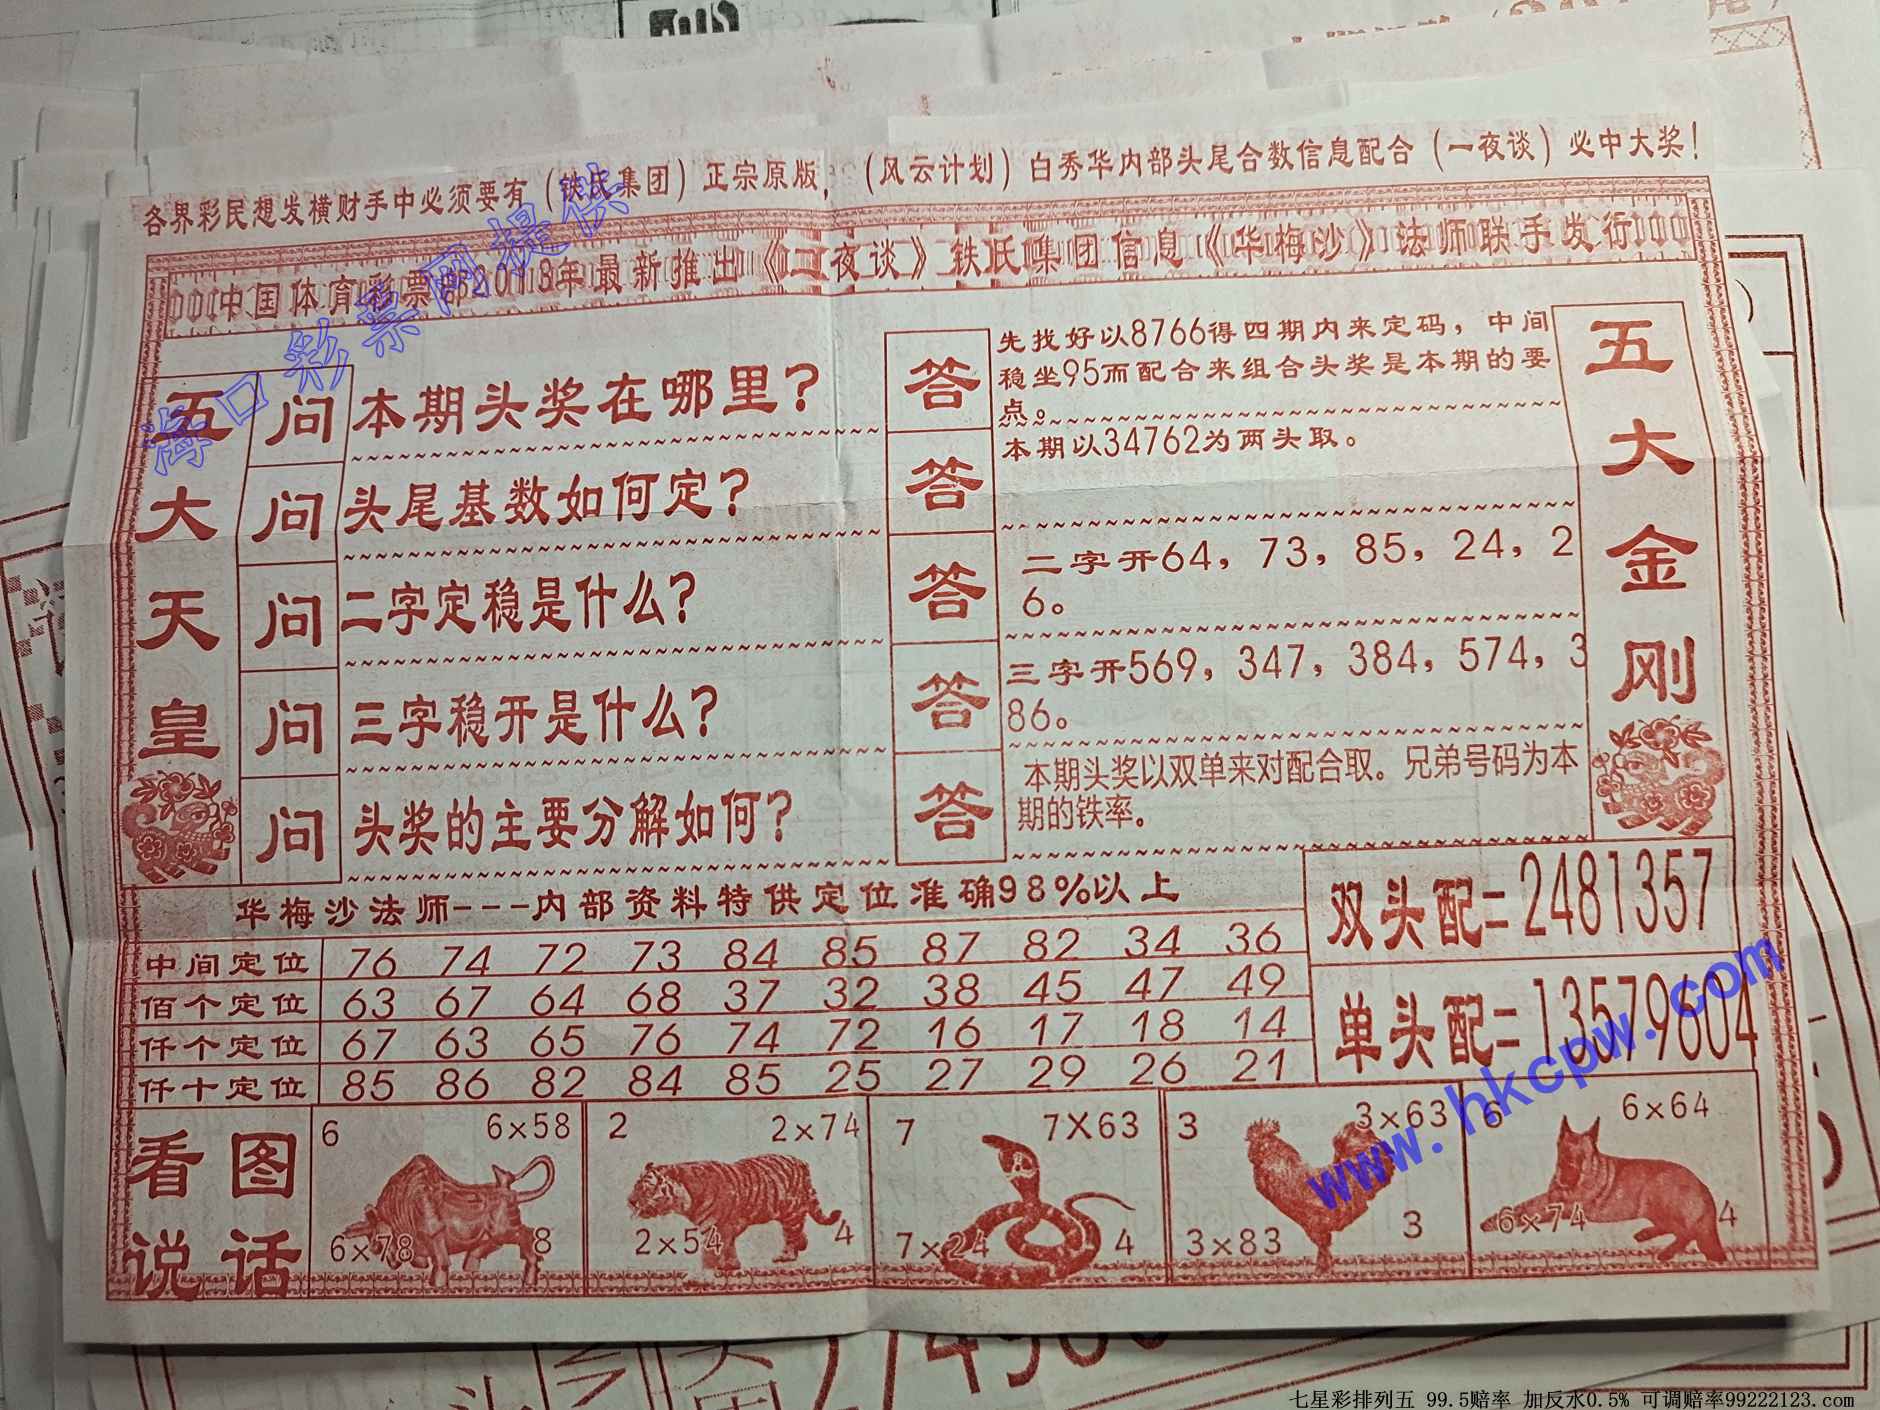 各界彩民想发横财手中必须要有（铁氏集团）正宗原版，（风云计划）白秀华内部头尾合数信息配合（一夜谈）必中大奖！
中国体育彩票部2013年最新推出《一夜谈》铁氏集团信息《华梅沙》法师联手发行
海口彩票网提供
五大天皇
问 本期头奖在哪里？
答 先找好以8766得四期内来定码，中间
稳坐95而配合来组合头奖是本期的要
点。
问 头尾基数如何定？
答 本期以34762为两头取。
问 二字定稳是什么？
答 二字开64，73，85，24，2
6。
问 三字稳开是什么？
答 三字开569，347，384，574，3
86。
问 头奖的主要分解如何？
答 本期头奖以双单来对配合取。兄弟号码为本
期的铁率。
五大金刚
华梅沙法师---内部资料特供定位准确98%以上
中间定位 76 74 72 73 84 85 87 82 34 36
佰个定位 63 67 64 68 37 32 38 45 47 49
仟个定位 67 63 65 76 74 72 16 17 18 14
仟十定位 85 86 82 84 85 25 27 29 26 21
双头配=2481357
单头配=13579604
www.hkcpw.com
看图
说话
6 6×58
6×78 8
2 2×74
2×54 4
7 7X63
7×24 4
3 3×63
3×83 3
6 6×64
6×74 4
七星彩排列五 99.5赔率 加反水0.5% 可调赔率99222123.com